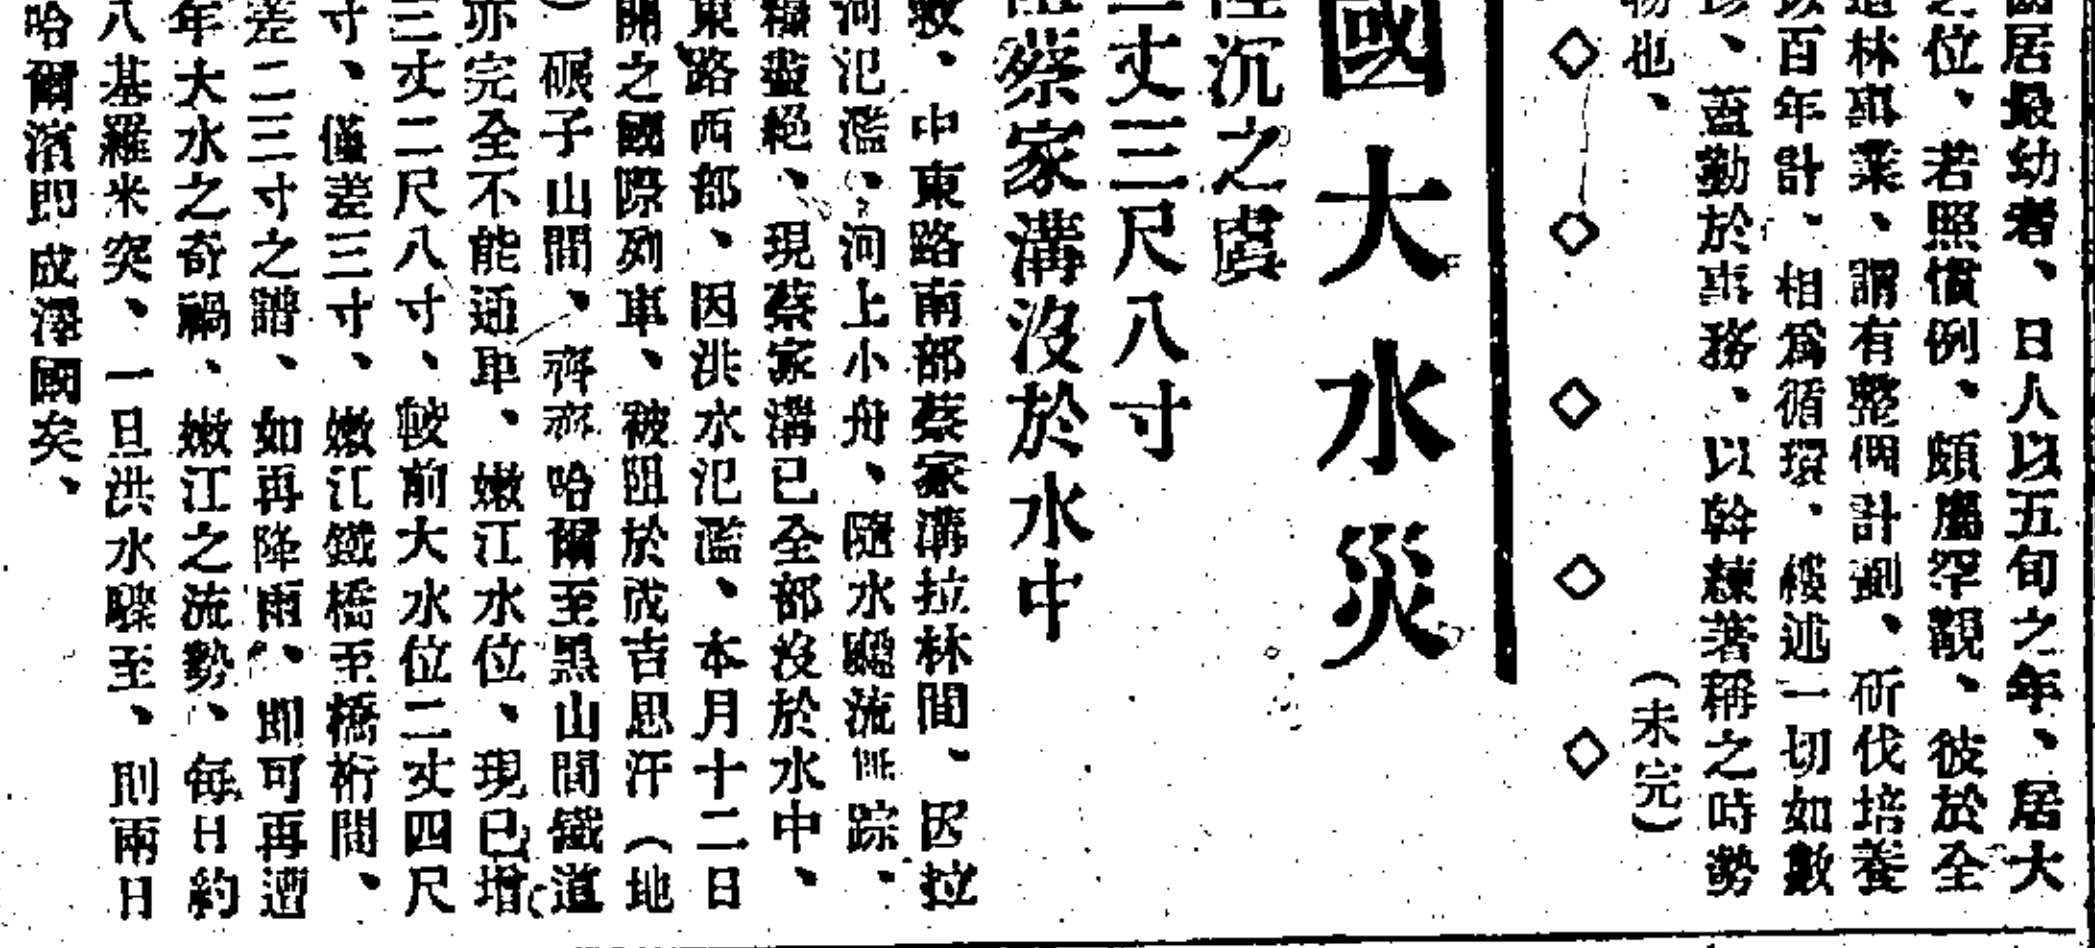 居最幼者、日人以五旬之年、居大
之位、若照慣例、頗屬罕覯、彼於全
造林事業、謂有整個計劃、斫伐培養
以百年計、相爲循環、縷述一切如數
珍、蓋勤於事務、以幹練著稱之時勢
物也、（未完）
◇◇◇◇◇
國大水災
沉之虞
丈三尺八寸
蔡家溝沒於水中
救、中東路南部蔡家溝拉林間、因拉
河氾濫、河上小舟、隨水飄流無踪、
糧盡絕、現蔡家溝已全部沒於水中、
東路西部、因洪水氾濫、本月十二日
開之國際列車、被阻於成吉思汗（地
）碾子山間、齊齊哈爾至黑山間鐵道
亦完全不能通車、嫩江水位、現已增
三丈二尺八寸、較前大水位二丈四尺
寸、僅差三寸、嫩江鐵橋至橋桁間、
差二三寸之譜、如再降雨、即可再遭
年大水之奇禍、嫩江之流勢、每日約
八基羅米突、一旦洪水驟至、則兩日
哈爾濱即成澤國矣、